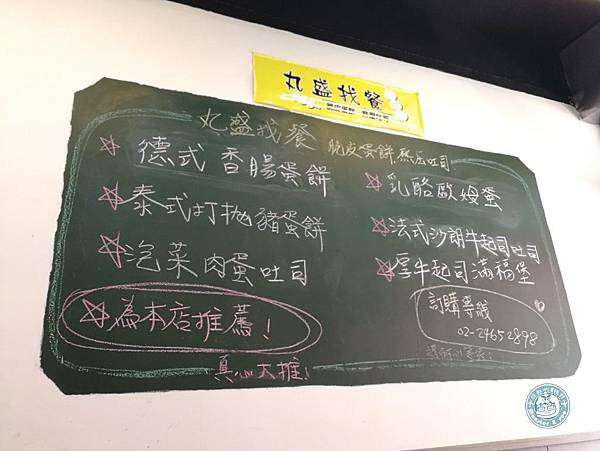 丸盛找餐
丸盛找餐 脆皮蛋餅.炭烤吐司
德式香腸蛋餅
泰式打拋豬蛋餅
泡菜肉蛋吐司
為本店推薦!
真心大推!
乳酪歐姆蛋
法式沙朗牛起司吐司
犀牛起司滿福堡
訂購專線
02-24652898